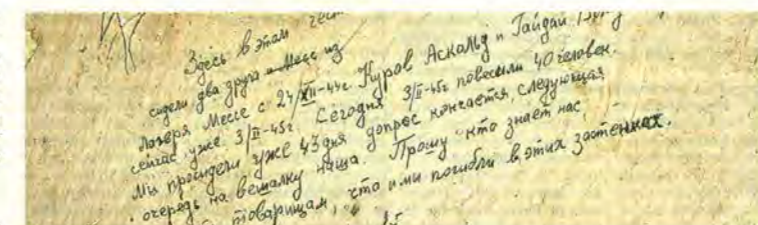 Здесь в этом гест
сидели два друга и Месс из
лагеря Мессе с 24/XII-44г Куров Аскольд и Гайдай
сейчас уже 3/II-45г. Сегодня 3/II-45г повесили 40 человек.
Мы просидели уже 43 дня допрос кончается, следующая
очередь на вешалку наша. Прошу кто знает нас,
товарищам, что и мы погибли в этих застенках.